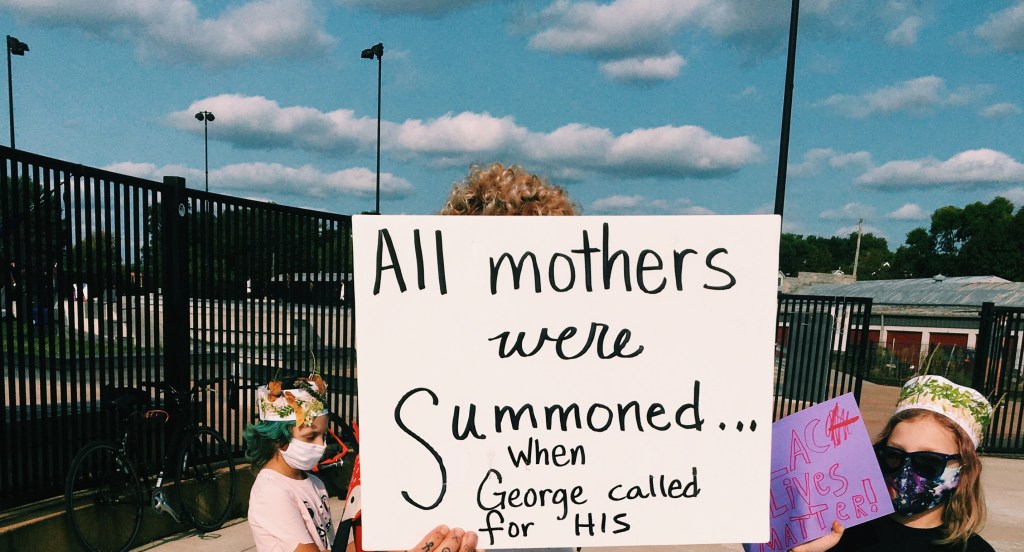 All mothers
were
Summoned...
when
George called
for HIS
LACK
LIVES
MATTER!